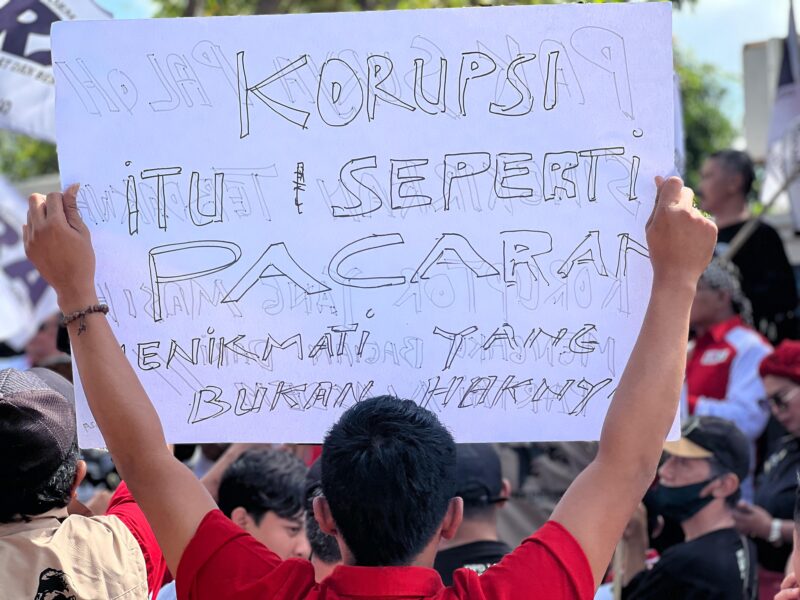 KORUPSI
ITU SEPERTI
PACARAN
MENIKMATI YANG
BUKAN HAKNYA